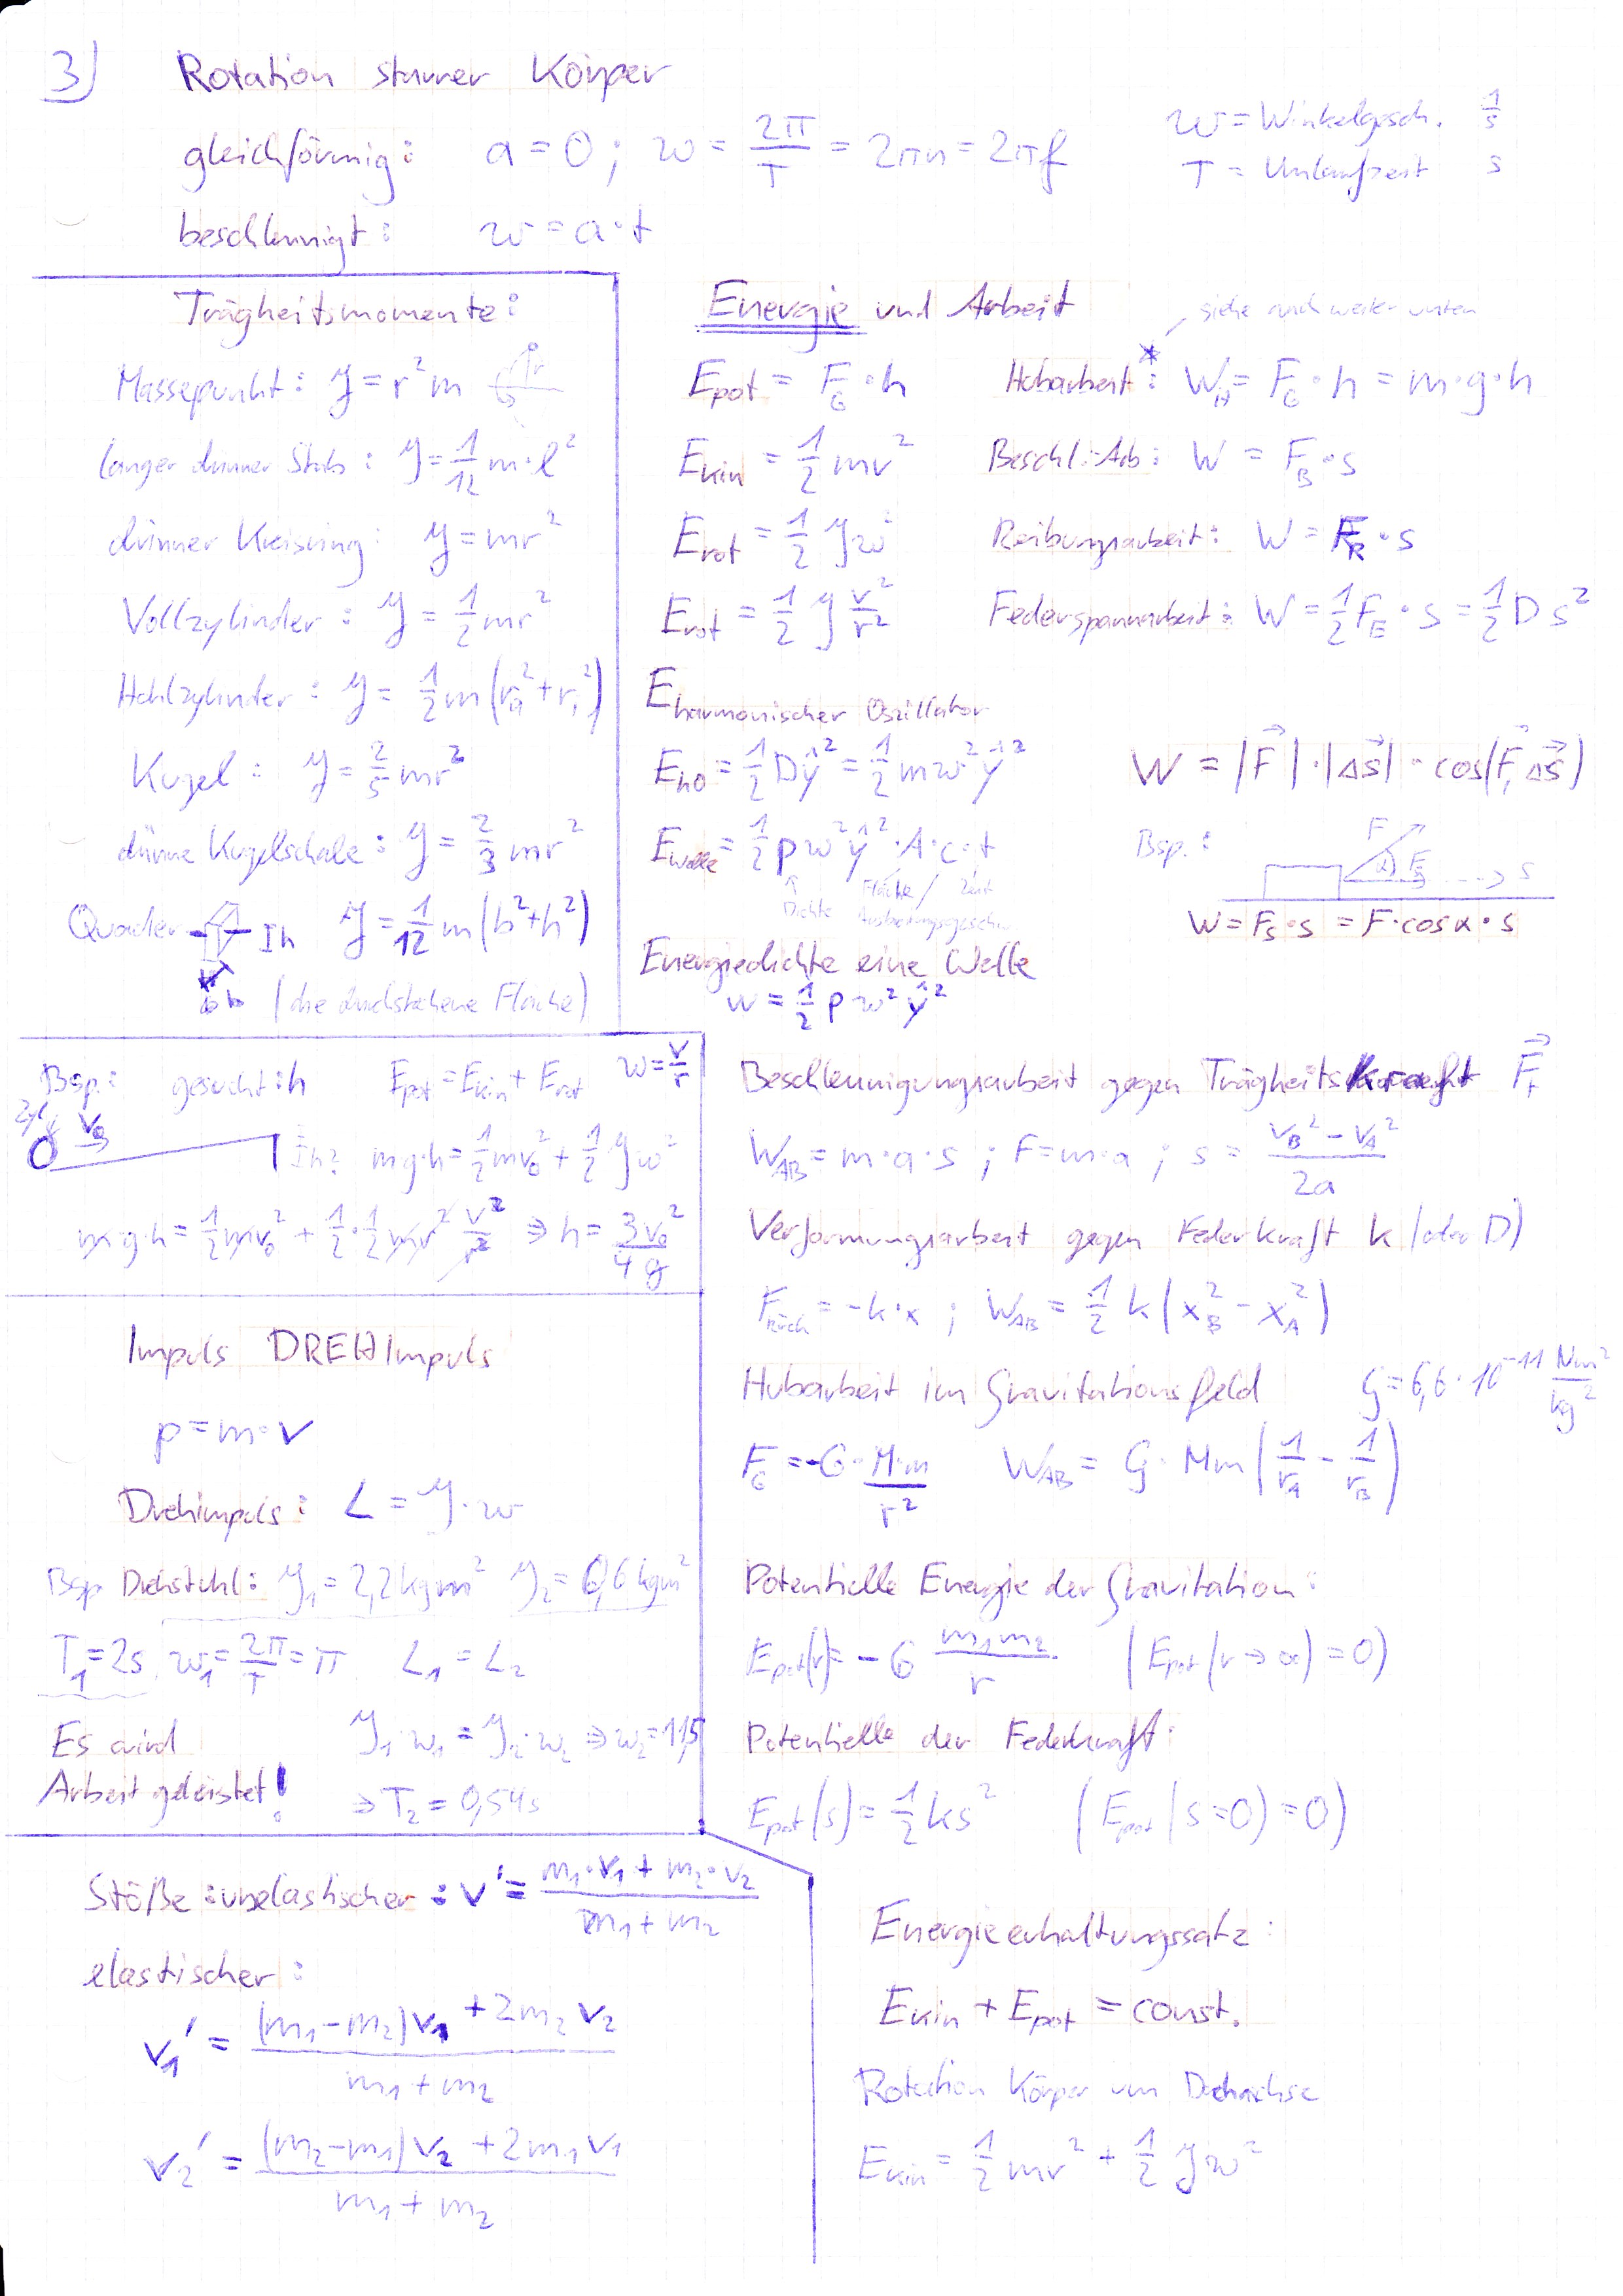 3) Rotation starrer Körper
gleichförmig: a = 0 ; ω = 2π/T = 2πn = 2πf
ω = Winkelgesch. 1/s
T = Umlaufzeit s
beschleunigt: ω = a·t
Trägheitsmomente:
Massepunkt: J = r²m
langer dünner Stab: J = 1/12 m·l²
dünner Kreisring: J = mr²
Vollzylinder: J = 1/2 mr²
Hohlzylinder: J = 1/2 m(rₐ² + rᵢ²)
Kugel: J = 2/5 mr²
dünne Kugelschale: J = 2/3 mr²
Quader h J = 1/12 m(b² + h²)
b (die durchstochene Fläche)
Energie und Arbeit
siehe auch weiter unten
E_pot = F_G · h Hubarbeit*: W_H = F_G · h = m·g·h
E_kin = 1/2 mv² Beschl.-Arb: W = F_B · s
E_rot = 1/2 Jω² Reibungsarbeit: W = F_R · s
E_rot = 1/2 J v²/r² Federspannarbeit: W = 1/2 F_E · s = 1/2 D s²
E harmonischer Oszillator
E_ho = 1/2 Dŷ² = 1/2 mω²ŷ²
W = |F⃗| · |Δs⃗| · cos(F⃗, Δs⃗)
E_Welle = 1/2 ρω²ŷ²·A·c·t
Dichte Fläche / Zeit
Ausbreitungsgeschw.
Bsp.: F α F_S s
W = F_S · s = F·cosα·s
Energiedichte eine Welle
w = 1/2 ρ ω² ŷ²
Bsp.: gesucht: h E_pot = E_kin + E_rot ω = v/r
Zyl. v₀ h? mg·h = 1/2 mv₀² + 1/2 Jω²
m·g·h = 1/2 mv₀² + 1/2 · 1/2 mr² v²/r² ⇒ h = 3v₀²/4g
Impuls DREHImpuls
p = m·v
Drehimpuls: L = J·ω
Bsp Drehstuhl: J₁ = 2,2 kgm² J₂ = 0,6 kgm²
T₁ = 2s ω₁ = 2π/T = π L₁ = L₂
Es wird J₁·ω₁ = J₂·ω₂ ⇒ ω₂ = 11,5
Arbeit geleistet! ⇒ T₂ = 0,54s
Beschleunigungsarbeit gegen Trägheitskraft F⃗_t
W_AB = m·a·s ; F = m·a ; s = (v_B² - v_A²)/2a
Verformungsarbeit gegen Federkraft k (oder D)
F_Rück = -k·x ; W_AB = 1/2 k(x_B² - x_A²)
Hubarbeit im Gravitationsfeld G = 6,6·10⁻¹¹ Nm²/kg²
F_G = -G · M·m/r² W_AB = G·Mm(1/r_A - 1/r_B)
Potentielle Energie der Gravitation:
E_pot(r) = -G m₁m₂/r (E_pot(r→∞) = 0)
Potentielle der Federkraft:
E_pot(s) = 1/2 ks² (E_pot(s=0) = 0)
Stöße: unelastischer: v' = (m₁·v₁ + m₂·v₂)/(m₁ + m₂)
elastischer:
v₁' = ((m₁-m₂)v₁ + 2m₂v₂)/(m₁ + m₂)
v₂' = ((m₂-m₁)v₂ + 2m₁v₁)/(m₁ + m₂)
Energieerhaltungssatz:
E_kin + E_pot = const.
Rotation Körper um Drehachse
E_kin = 1/2 mv² + 1/2 Jω²